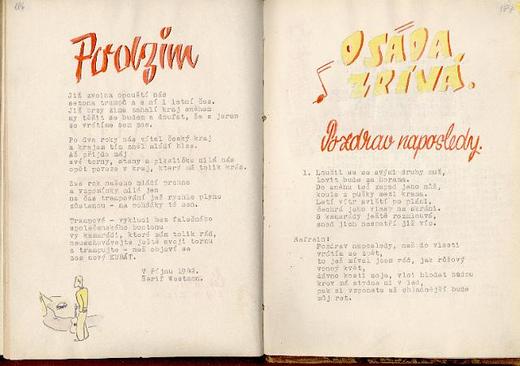 Podzim
Již zvolna opouští nás
sezona trampů a s ní i letní čas.
Již brzy zima zahalí kraj sněhem
my těšit se budem a doufat, že s jarem
se vrátíme zas.
Po dva roky nás vítal český kraj
a krajem tím zněl mládí hlas.
Až přijde máj
své torny, stany a plni
opět poveze v kraj, který má tolik krás.
Zas rok našeho mládí prchne
a vzpomínky milé jen
na čas trampování jež rychle plynu
zůstanou - na pohádky té sen.
Trampové - vyklučí bez falešného
společenského bontonu
vy kamarádi, které mám tolik rád,
neuschovávejte ještě svoji tornu
a trampujte - než objeví se
nový KUBÁT.
V říjnu 1942.
Šerif Westmann.
OSADA
ZPÍVÁ.
Pozdrav naposledy.
1. Loučil se se svými druhy muž,
Lovit bude za horama.
Do sněhu teď zapad jeho nůž,
koule z pušky mezi
Letí vítr sviští po pláni,
šechrá jako vlasy na skráni.
S kamarády ještě rozmlouvá,
snad jich nespatří již víc.
Refrain:
Pozdrav naposledy, než do vlasti
vrátím se zpět,
to jež míval jsem rád, jak růžový
vonný květ,
dávno kostí moje, vlci hlodat budou
krev má stydne mi v led,
pak si vzpomeň až chladnější bude
můj ret.